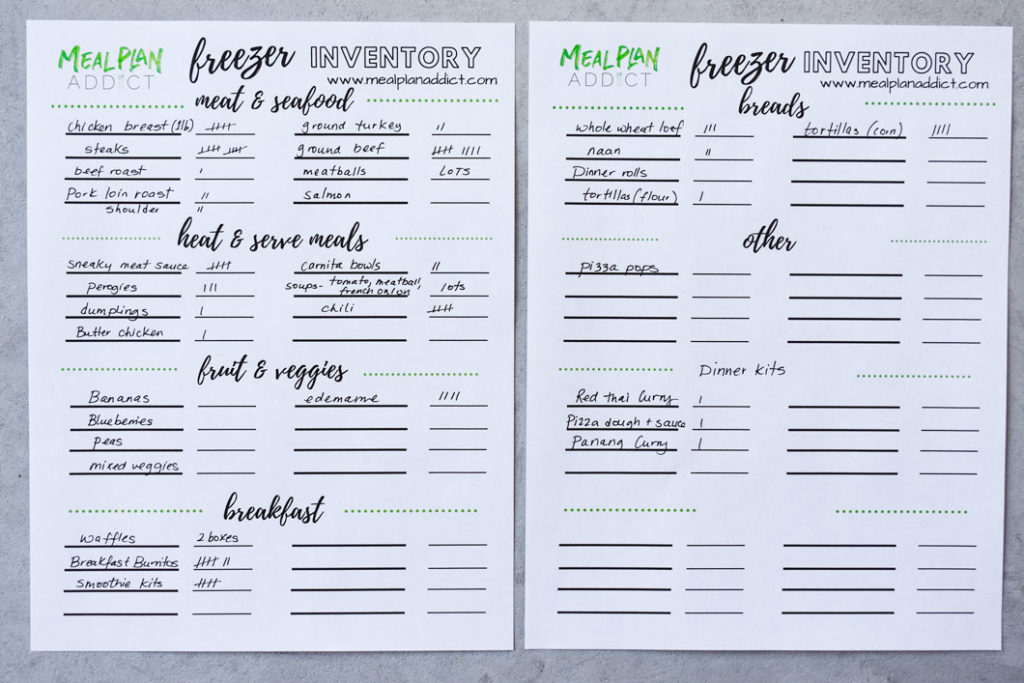 MEAL PLAN
ADDICT
freezer INVENTORY
www.mealplanaddict.com
meat & seafood
chicken breast (1lb) 卌 ground turkey ||
steaks 卌 卌 ground beef 卌 ||||
beef roast | meatballs LOTS
Pork loin roast || salmon
shoulder ||
heat & serve meals
sneaky meat sauce 卌 carnita bowls ||
perogies ||| soups- tomato, meatball, french onion lots
dumplings | chili 卌
Butter chicken |
fruit & veggies
Bananas edemame ||||
Blueberries
peas
mixed veggies
breakfast
waffles 2 boxes
Breakfast Burritos 卌 ||
Smoothie kits 卌
MEAL PLAN
ADDICT
freezer INVENTORY
www.mealplanaddict.com
breads
whole wheat loef ||| tortillas (corn) ||||
naan ||
Dinner rolls
tortillas (flour) |
other
pizza pops
Dinner kits
Red thai Curry |
Pizza dough + sauce |
Panang Curry |